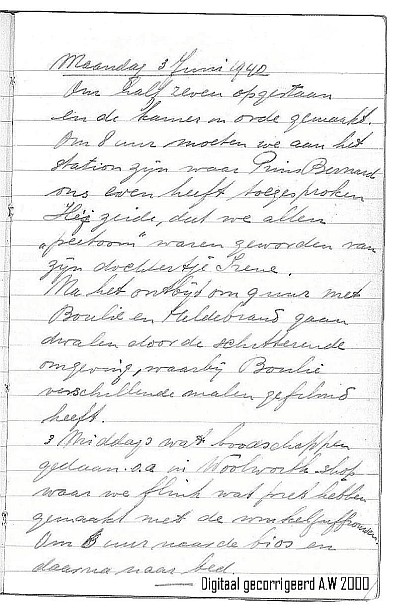 Maandag 3 Juni 1940
Om half zeven opgestaan
en de kamer in orde gemaakt.
Om 8 uur moeten we aan het
station zijn waar Prins Bernard
ons even heeft toegesproken
Hij zeide, dat we allen
„peetoom" waren geworden van
zijn dochtertje Irene.
Na het ontbijt om 9 uur met
Boulie en Hildebrand gaan
dwalen door de schitterende
omgeving, waarbij Boulie
verschillende malen gefilmd
heeft.
's Middags wat boodschappen
gedaan o.a. in Woolworth shop
waar we flink wat pret hebben
gemaakt met de winkeljuffrouwen
Om 6 uur naar de bios en
daarna naar bed.
Digitaal gecorrigeerd A.W 2000